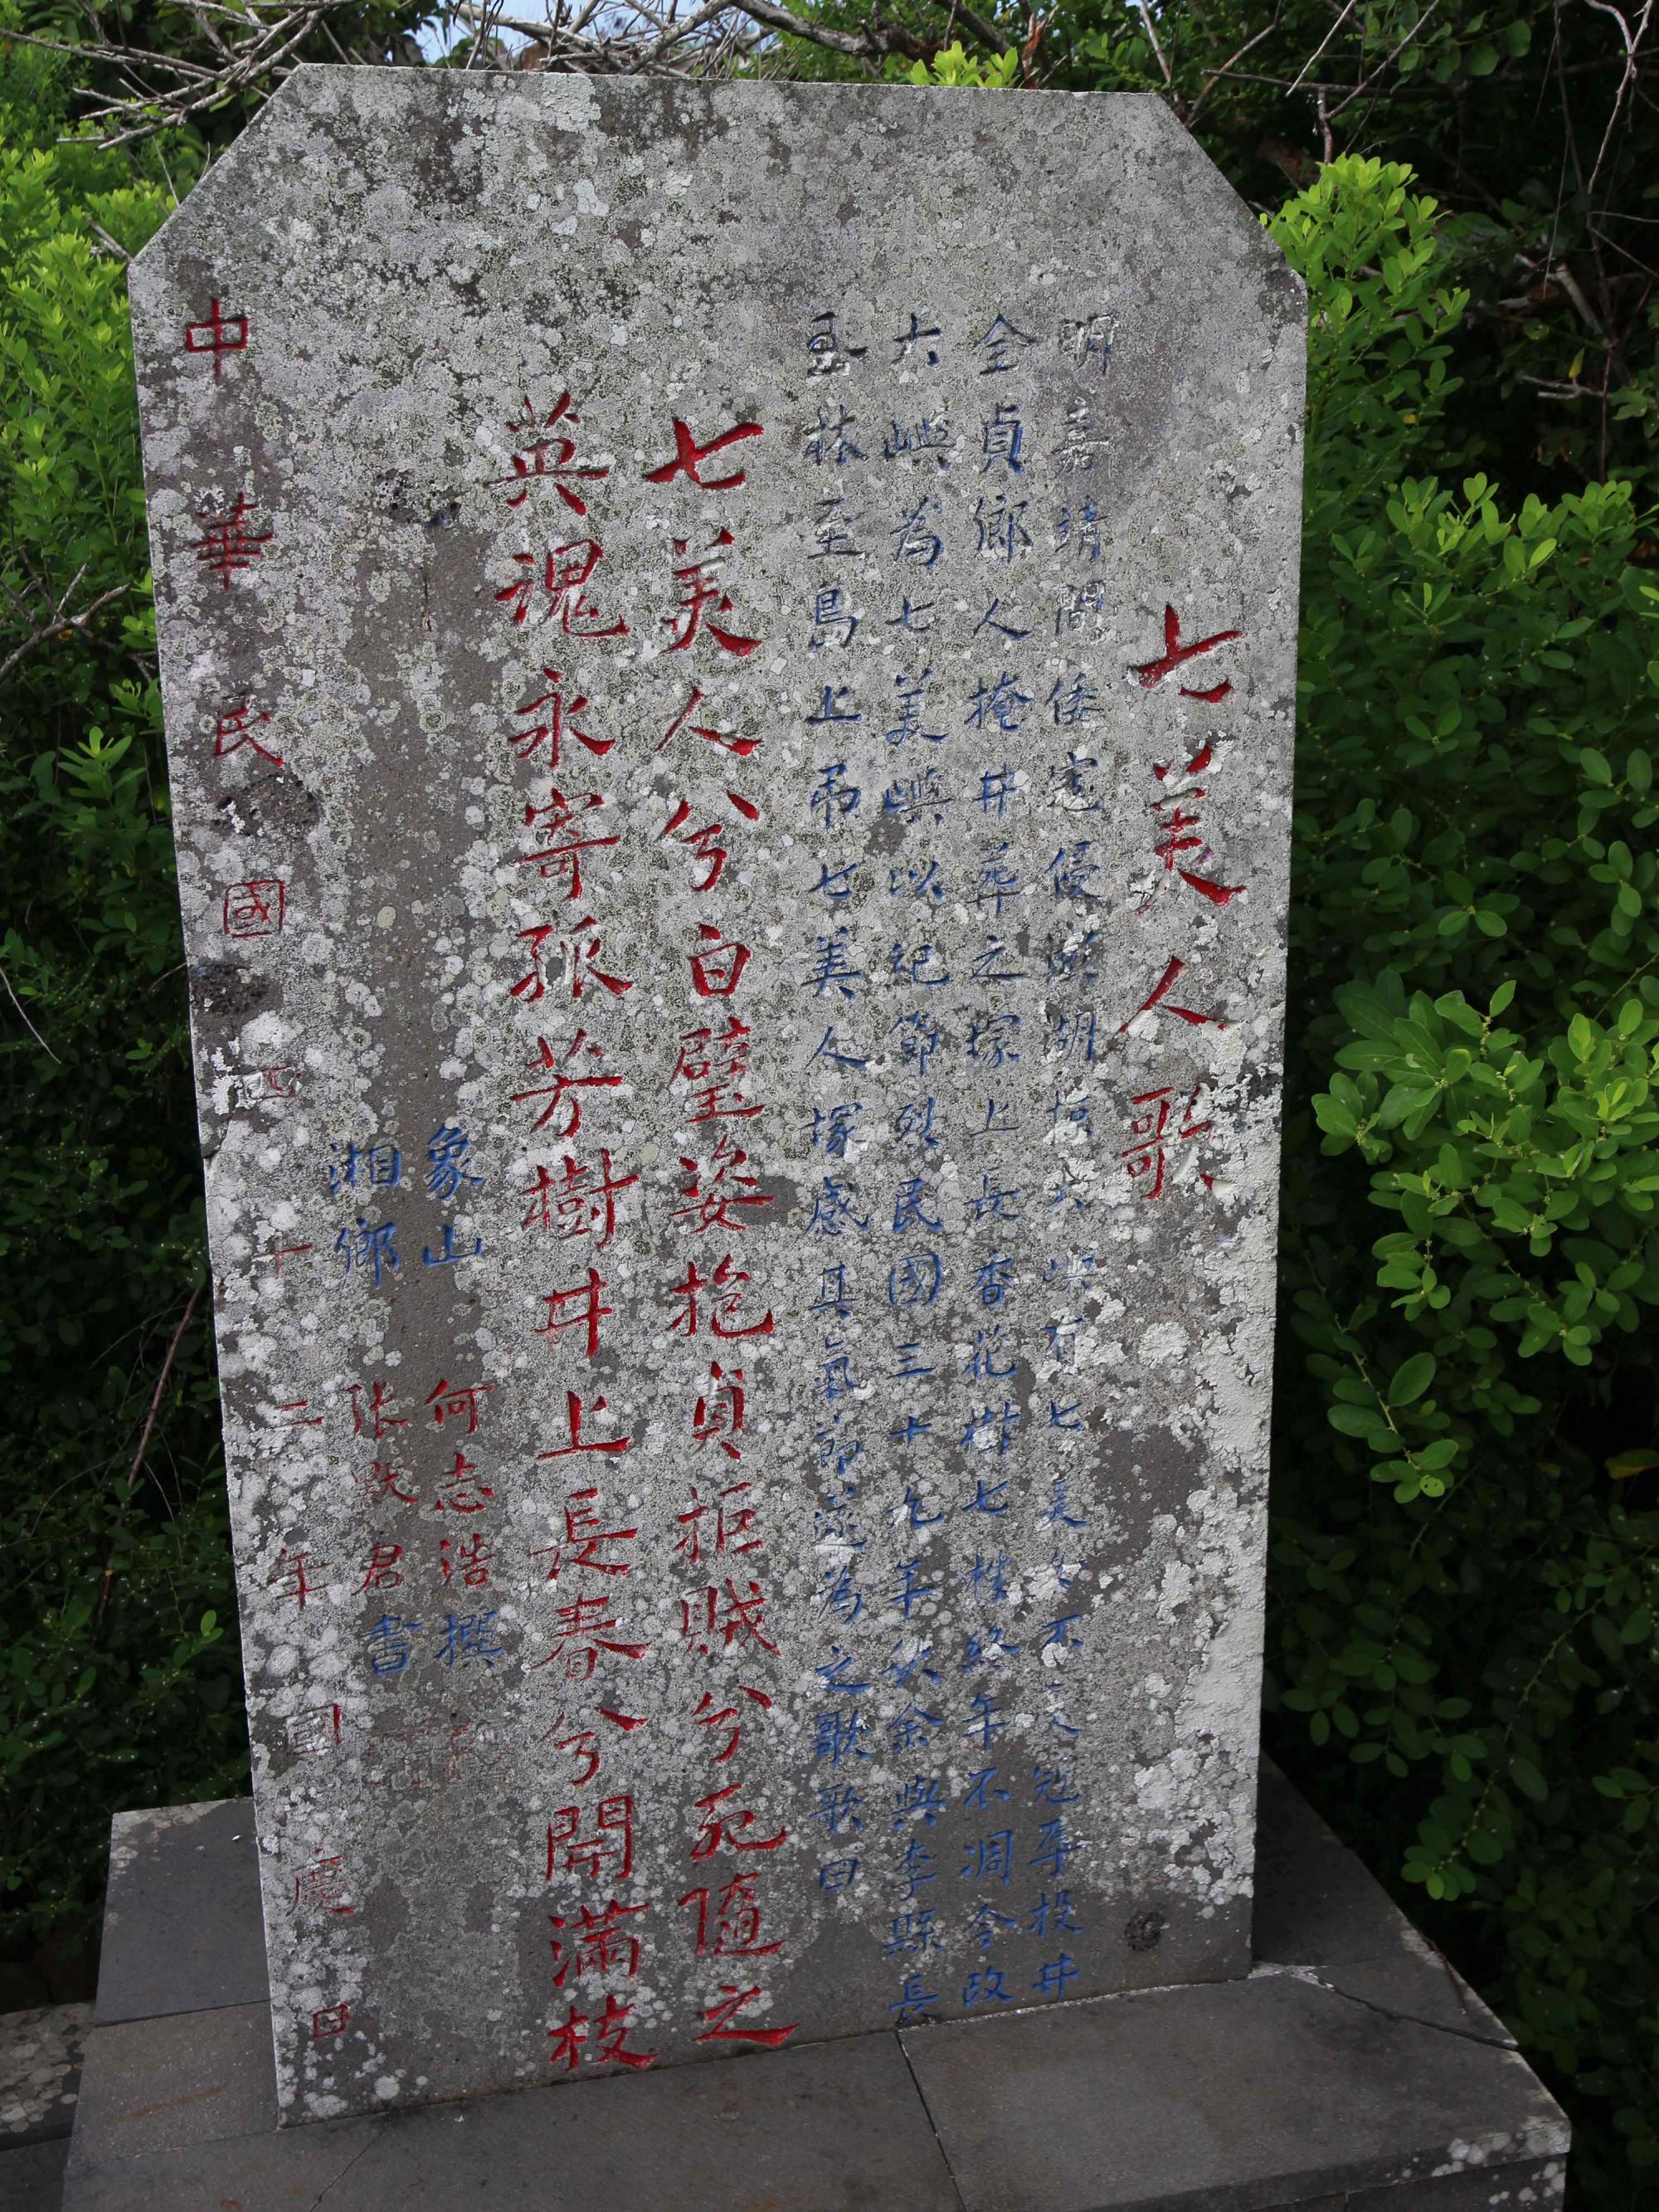 七美人歌
明嘉靖間倭寇侵澎湖大嶼有七美人不受寇辱投井
全貞鄉人掩井葬之塚上長香花樹七株終年不凋今改
大嶼為七美嶼以紀節烈民國三十九年余與李縣長
玉林至島上吊七美人塚感其氣節遂為之歌歌曰
七美人兮白璧姿抱貞拒賊兮死隨之
英魂永寄孤芳樹井上長春兮開滿枝
象山 何志浩 撰
湘鄉 張默君 書
中華民國四十二年國慶日